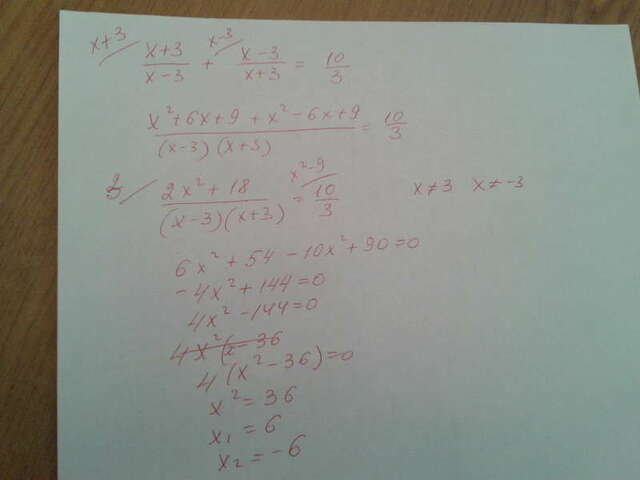 x+3/ (x+3)/(x-3) + x-3/ (x-3)/(x+3) = 10/3
(x²+6x+9+x²-6x+9)/((x-3)(x+3)) = 10/3
3/ (2x²+18)/((x-3)(x+3)) = x²-9/ 10/3 x≠3 x≠-3
6x²+54-10x²+90=0
-4x²+144=0
4x²-144=0
4(x²-36)=0
x²=36
x₁=6
x₂=-6